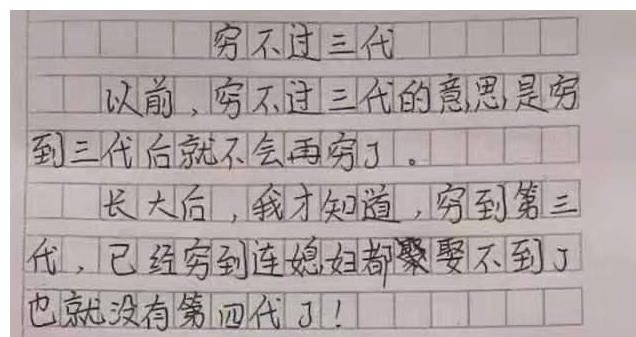 穷不过三代
以前，穷不过三代的意思是穷
到三代后就不会再穷了。
长大后，我才知道，穷到第三
代，已经穷到连媳妇都娶不到了
也就没有第四代了！